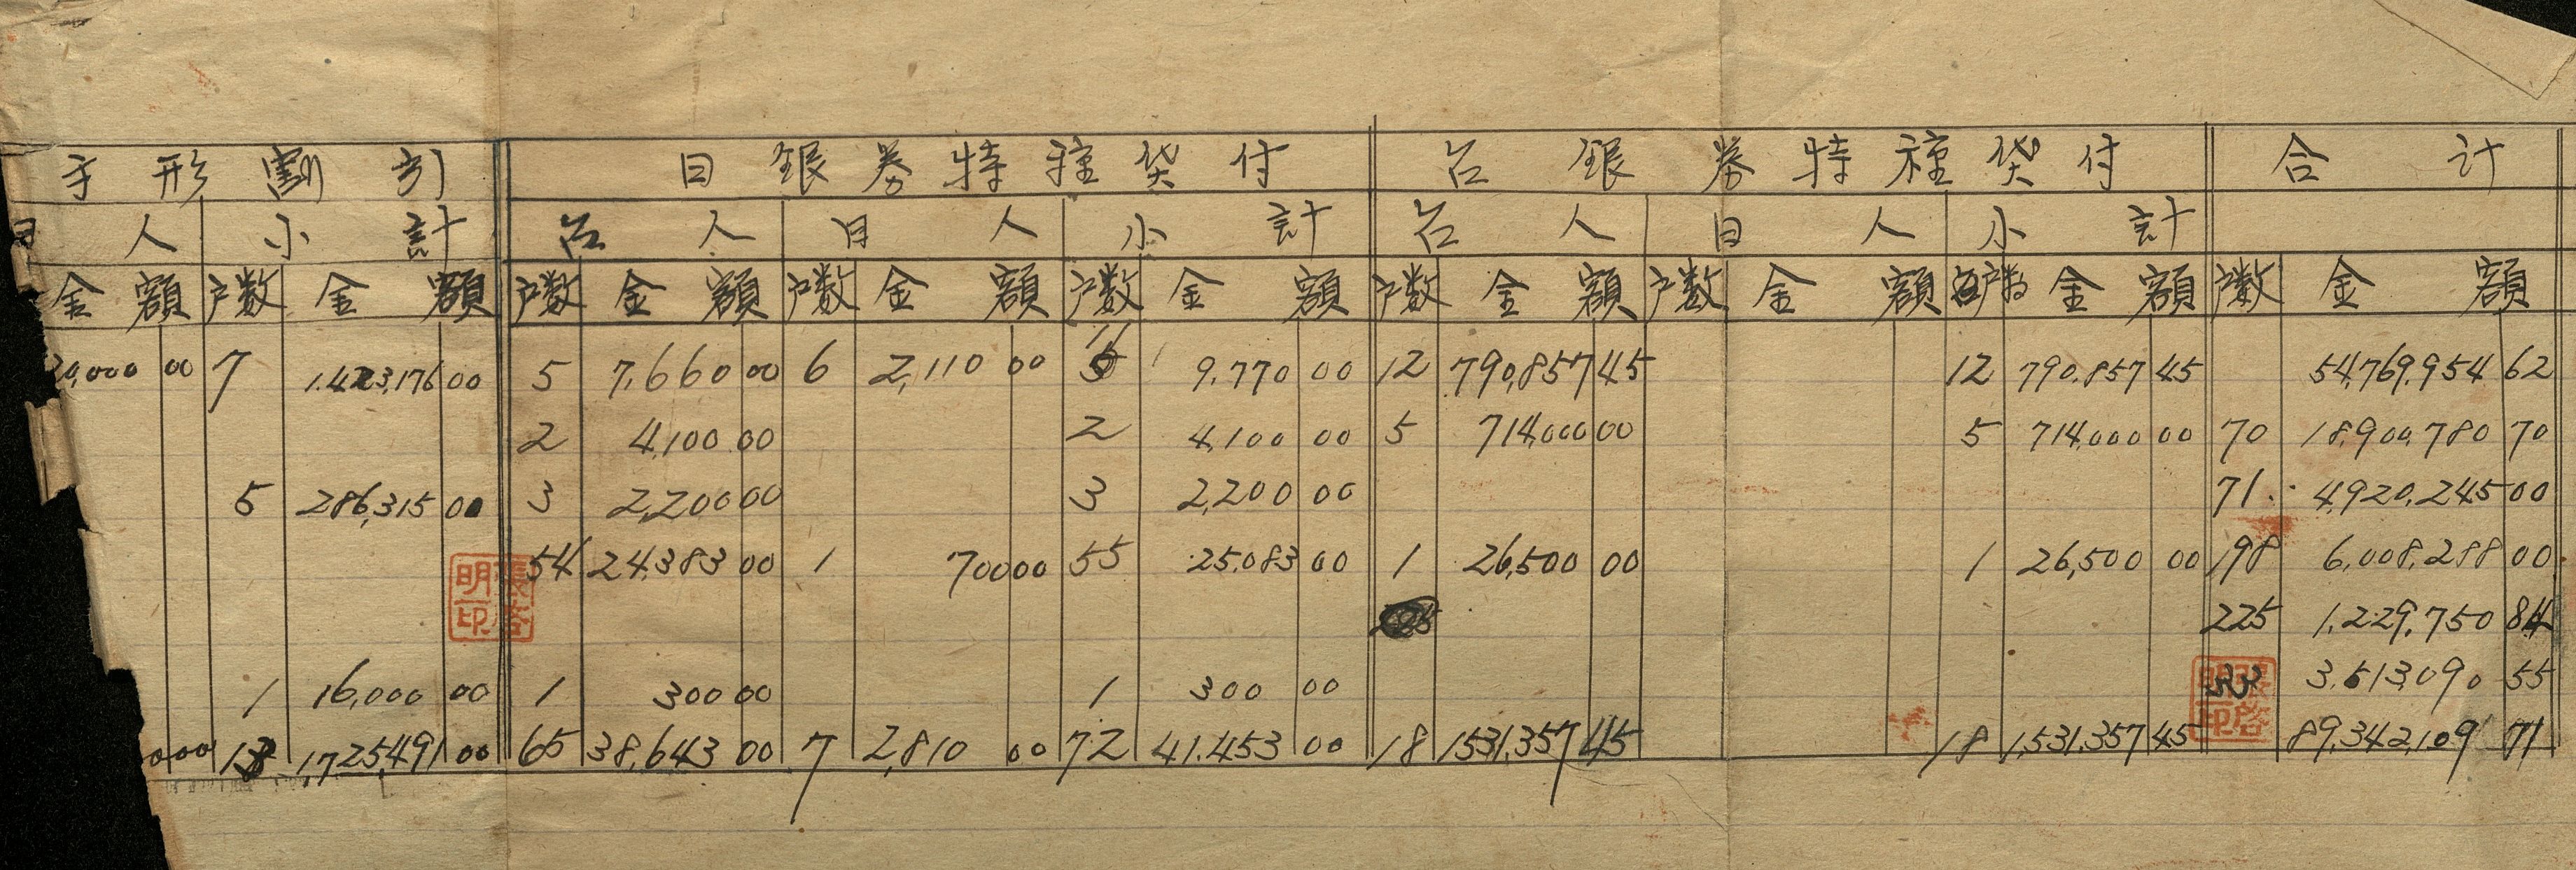 手形割引 日銀券特種貸付 台銀券特種貸付 合計
日人 小計 台人 日人 小計 台人 日人 小計
金額 戸数 金額 戸数 金額 戸数 金額 戸数 金額 戸数 金額 戸数 金額 戸数 金額 戸数 金額
20,000 00 7 1,423,176 00 5 7,660 00 6 2,110 00 11 9,770 00 12 790,857 45 12 790,857 45 54,769,954 62
2 4,100 00 2 4,100 00 5 714,000 00 5 714,000 00 70 18,900,780 70
5 286,315 00 3 2,200 00 3 2,200 00 71 4,920,245 00
54 24,383 00 1 700 00 55 25,083 00 1 26,500 00 1 26,500 00 198 6,008,288 00
張啓明印
225 1,229,750 84
1 16,000 00 1 300 00 1 300 00 3,513,090 55
000 13 1,725,491 00 65 38,643 00 7 2,810 00 72 41,453 00 18 1,531,357 45 18 1,531,357 45 89,342,109 71
張啓明印